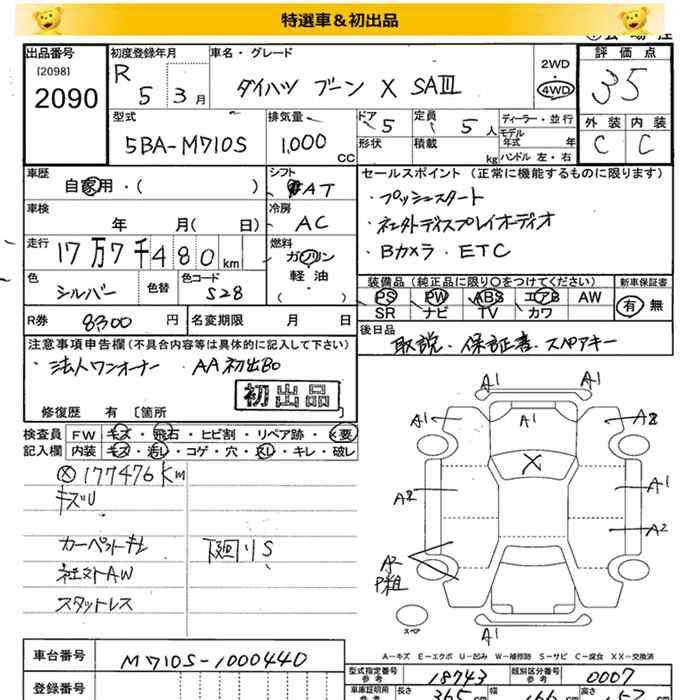 特選車＆初出品
出品番号
[2098]
2090
初度登録年月
R 5 3月
車名・グレード
ダイハツ ブーン X SAIII
2WD
・
4WD
評価点
3.5
外装 内装
C C
型式
5BA-M710S
排気量
1,000 CC
ドア 5
定員 5 人
形状
積載 kg
ディーラー・並行
モデル年式 年
ハンドル 左・右
車歴
自家用・( )
シフト
AT
セールスポイント（正常に機能するものに限ります）
・プッシュスタート
・ネxtディスプレイオーディオ
・Bカメラ・ETC
車検
年 月( 日)
冷房
AC
走行
17万7千480km
燃料
ガソリン
軽・油
( )
色
シルバー
色替
色コード
S28
装備品（純正品に限り○をつけてください）
PS PW ABS エアB AW
SR ナビ TV カワ
新車保証書
有・無
R券 8300円
名変期限 月 日
後日品
取説・保証書・スペアキー
注意事項申告欄（不具合内容等は具体的に記入して下さい）
・法人ワンオーナー ・AA初出品
初出品
修復歴 有〔箇所
検査員
記入欄
FW キズ・飛石・ヒビ割・リペア跡・×要
内装 キズ・汚レ・コゲ・穴・スレ・キレ・破レ
Ⓧ 177476Km
キズU
カーペットキレ
社外AW
スタットレス
下廻りS
A1 A1
A1 A1 A2
X
A2 A1
A2
A2
P粗
スペア
A1
A－キズ E－エクボ U－凹み W－補修跡 S－サビ C－腐食 XX－交換済
車台番号
M710S-1000440
登録番号
型式指定番号
参考
18743
類別区分番号
参考
0007
車庫証明用
参考
長さ 365 cm
幅 166 cm
高さ 152 cm